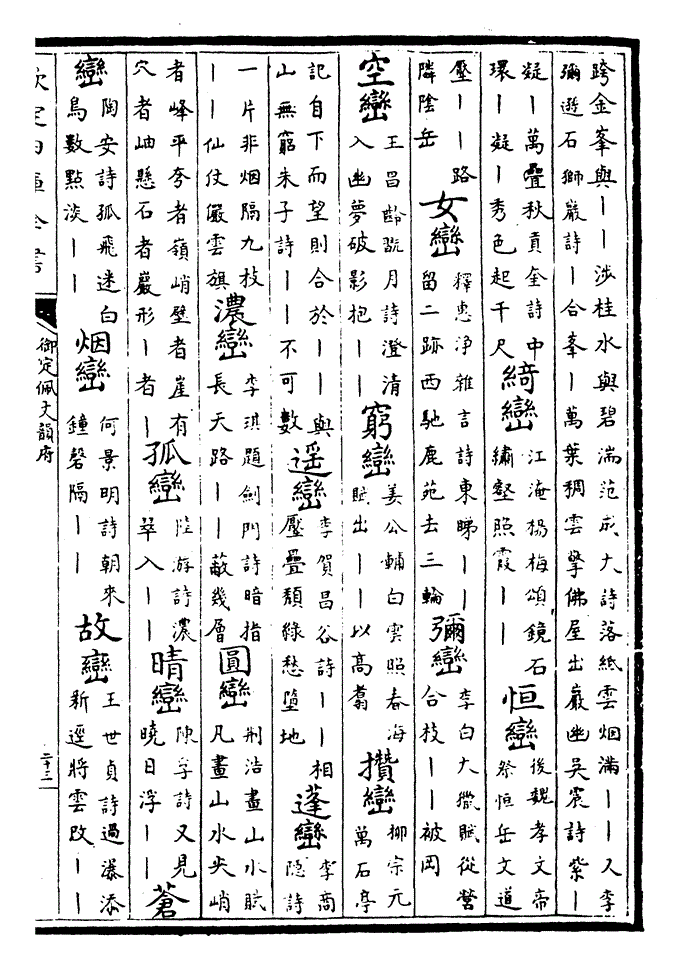 跨金峯與｜｜涉桂水與碧湍范成大詩落紙雲烟滿｜｜又李
彌遜石獅巖詩｜合峯｜萬葉稠雲擎佛屋出巖幽吳宸詩紫｜
凝｜萬疊秋貢奎詩中
環｜凝｜秀色起千尺
綺巒
江淹楊梅頌鏡石
繡壑照霞｜｜
恒巒
後魏孝文帝
祭恒岳文道
壓｜｜路
隣陰岳
女巒
釋惠净雜言詩東睇｜｜
留二跡西馳鹿苑去三輪
彌巒
李白大獵賦從營
合枝｜｜被岡
空巒
王昌齡翫月詩澄清
入幽夢破影抱｜｜
窮巒
姜公輔白雲照春海
賦出｜｜以高翥
攢巒
柳宗元
萬石亭
記自下而望則合於｜｜與
山無窮朱子詩｜｜不可數
遥巒
李賀昌谷詩｜｜相
壓疊頹綠愁墮地
蓬巒
李商
隱詩
一片非烟隔九枝
｜｜仙仗儼雲旗
濃巒
李琪題劍門詩暗指
長天路｜｜蔽幾層
圓巒
荆浩畫山水賦
凡畫山水尖峭
者峰平夸者嶺峭壁者崖有
穴者岫懸石者巖形｜者｜
孤巒
陸游詩濃
翠入｜｜
晴巒
陳孚詩又見
曉日浮｜｜
蒼
巒
陶安詩孤飛迷白
鳥數點淡｜｜
烟巒
何景明詩朝來
鐘磬隔｜｜
故巒
王世貞詩過瀑添
新逕將雲改｜｜
欽定四庫全書
御定佩文韻府
二十三